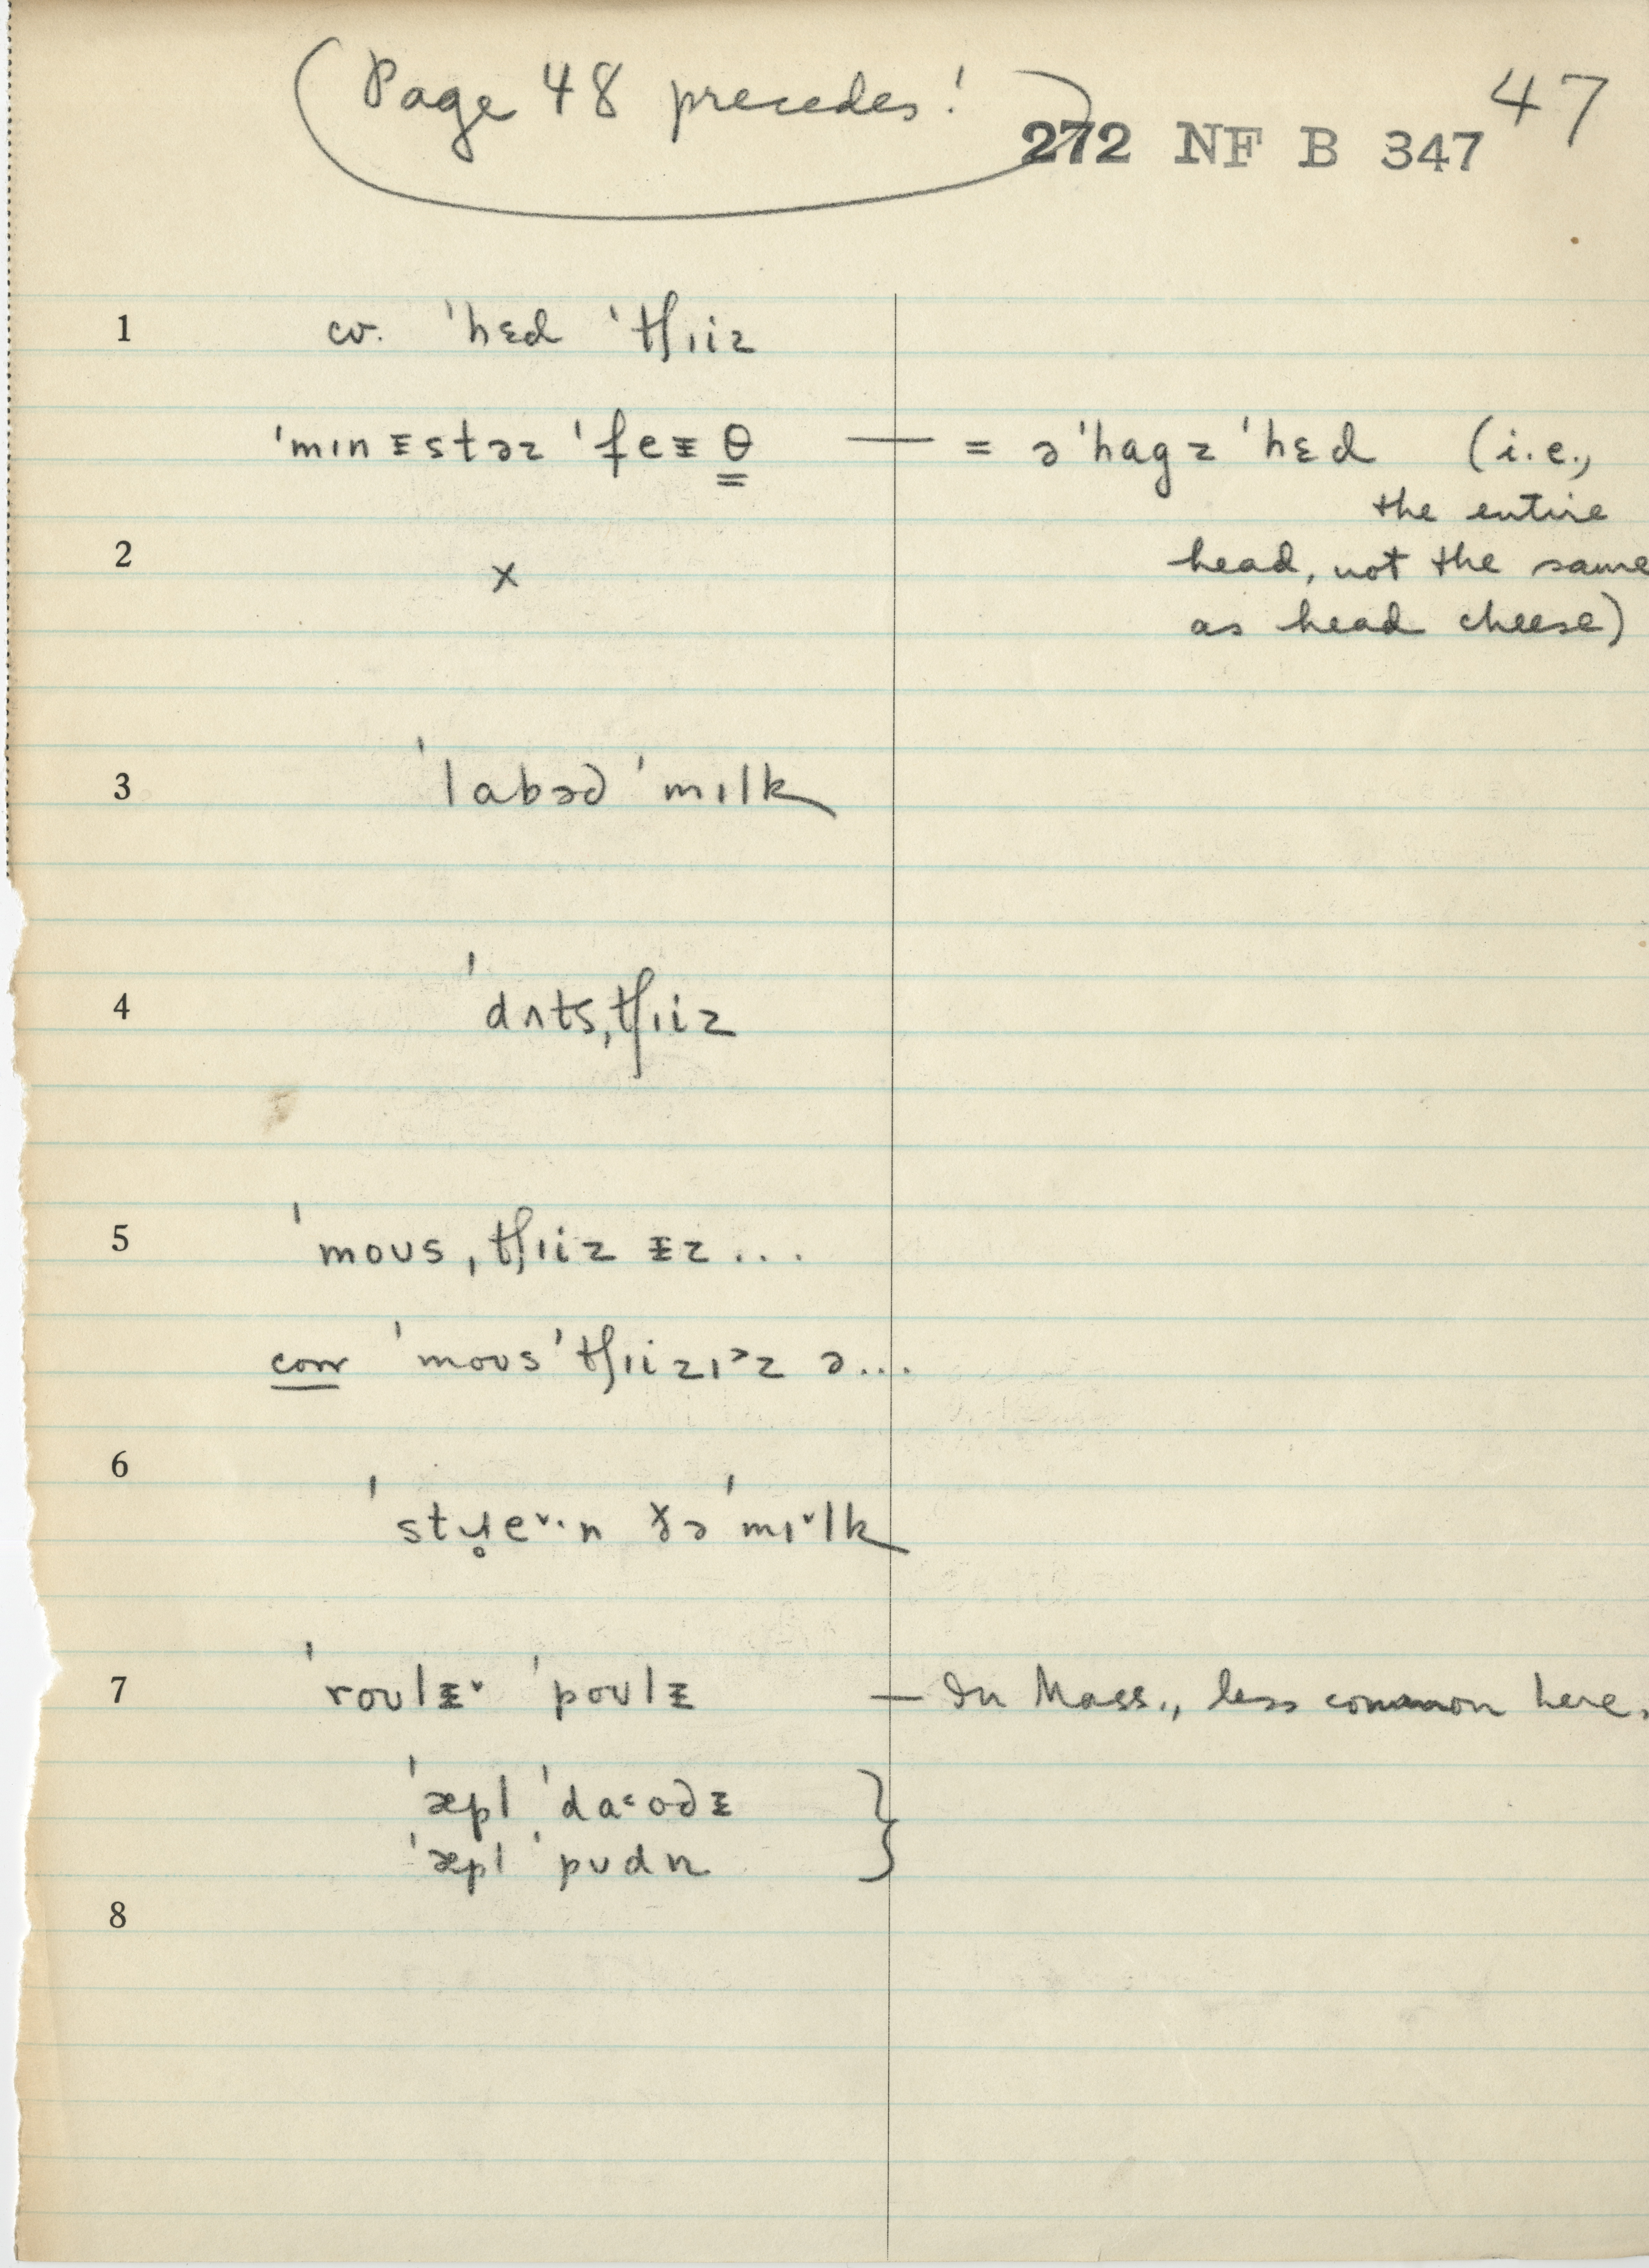 (Page 48 precedes!)
47
272 NF B 347
1 cv. ˈhɛd ˈtʃɪiz
ˈmɪnᵻstəz ˈfeᵻθ — = ə ˈhagz ˈhɛd (i.e.,
the entire
2 × head, not the same
as head cheese)
3 ˈlabəd ˈmɪlk
4 ˈdʌtsˌtʃɪiz
5 ˈmoʊsˌtʃɪiz ᵻz...
corr ˈmoʊs ˈtʃɪizɪ˃z ə...
6
ˈstɹ̥e˅·n ðə ˈmɪ˅lk
7 ˈroʊlᵻ˅ ˈpoʊlᵻ — In Mass., less common here.
ˈæpl ˈda˂ʊdᵻ }
ˈæpl ˈpʊdn
8